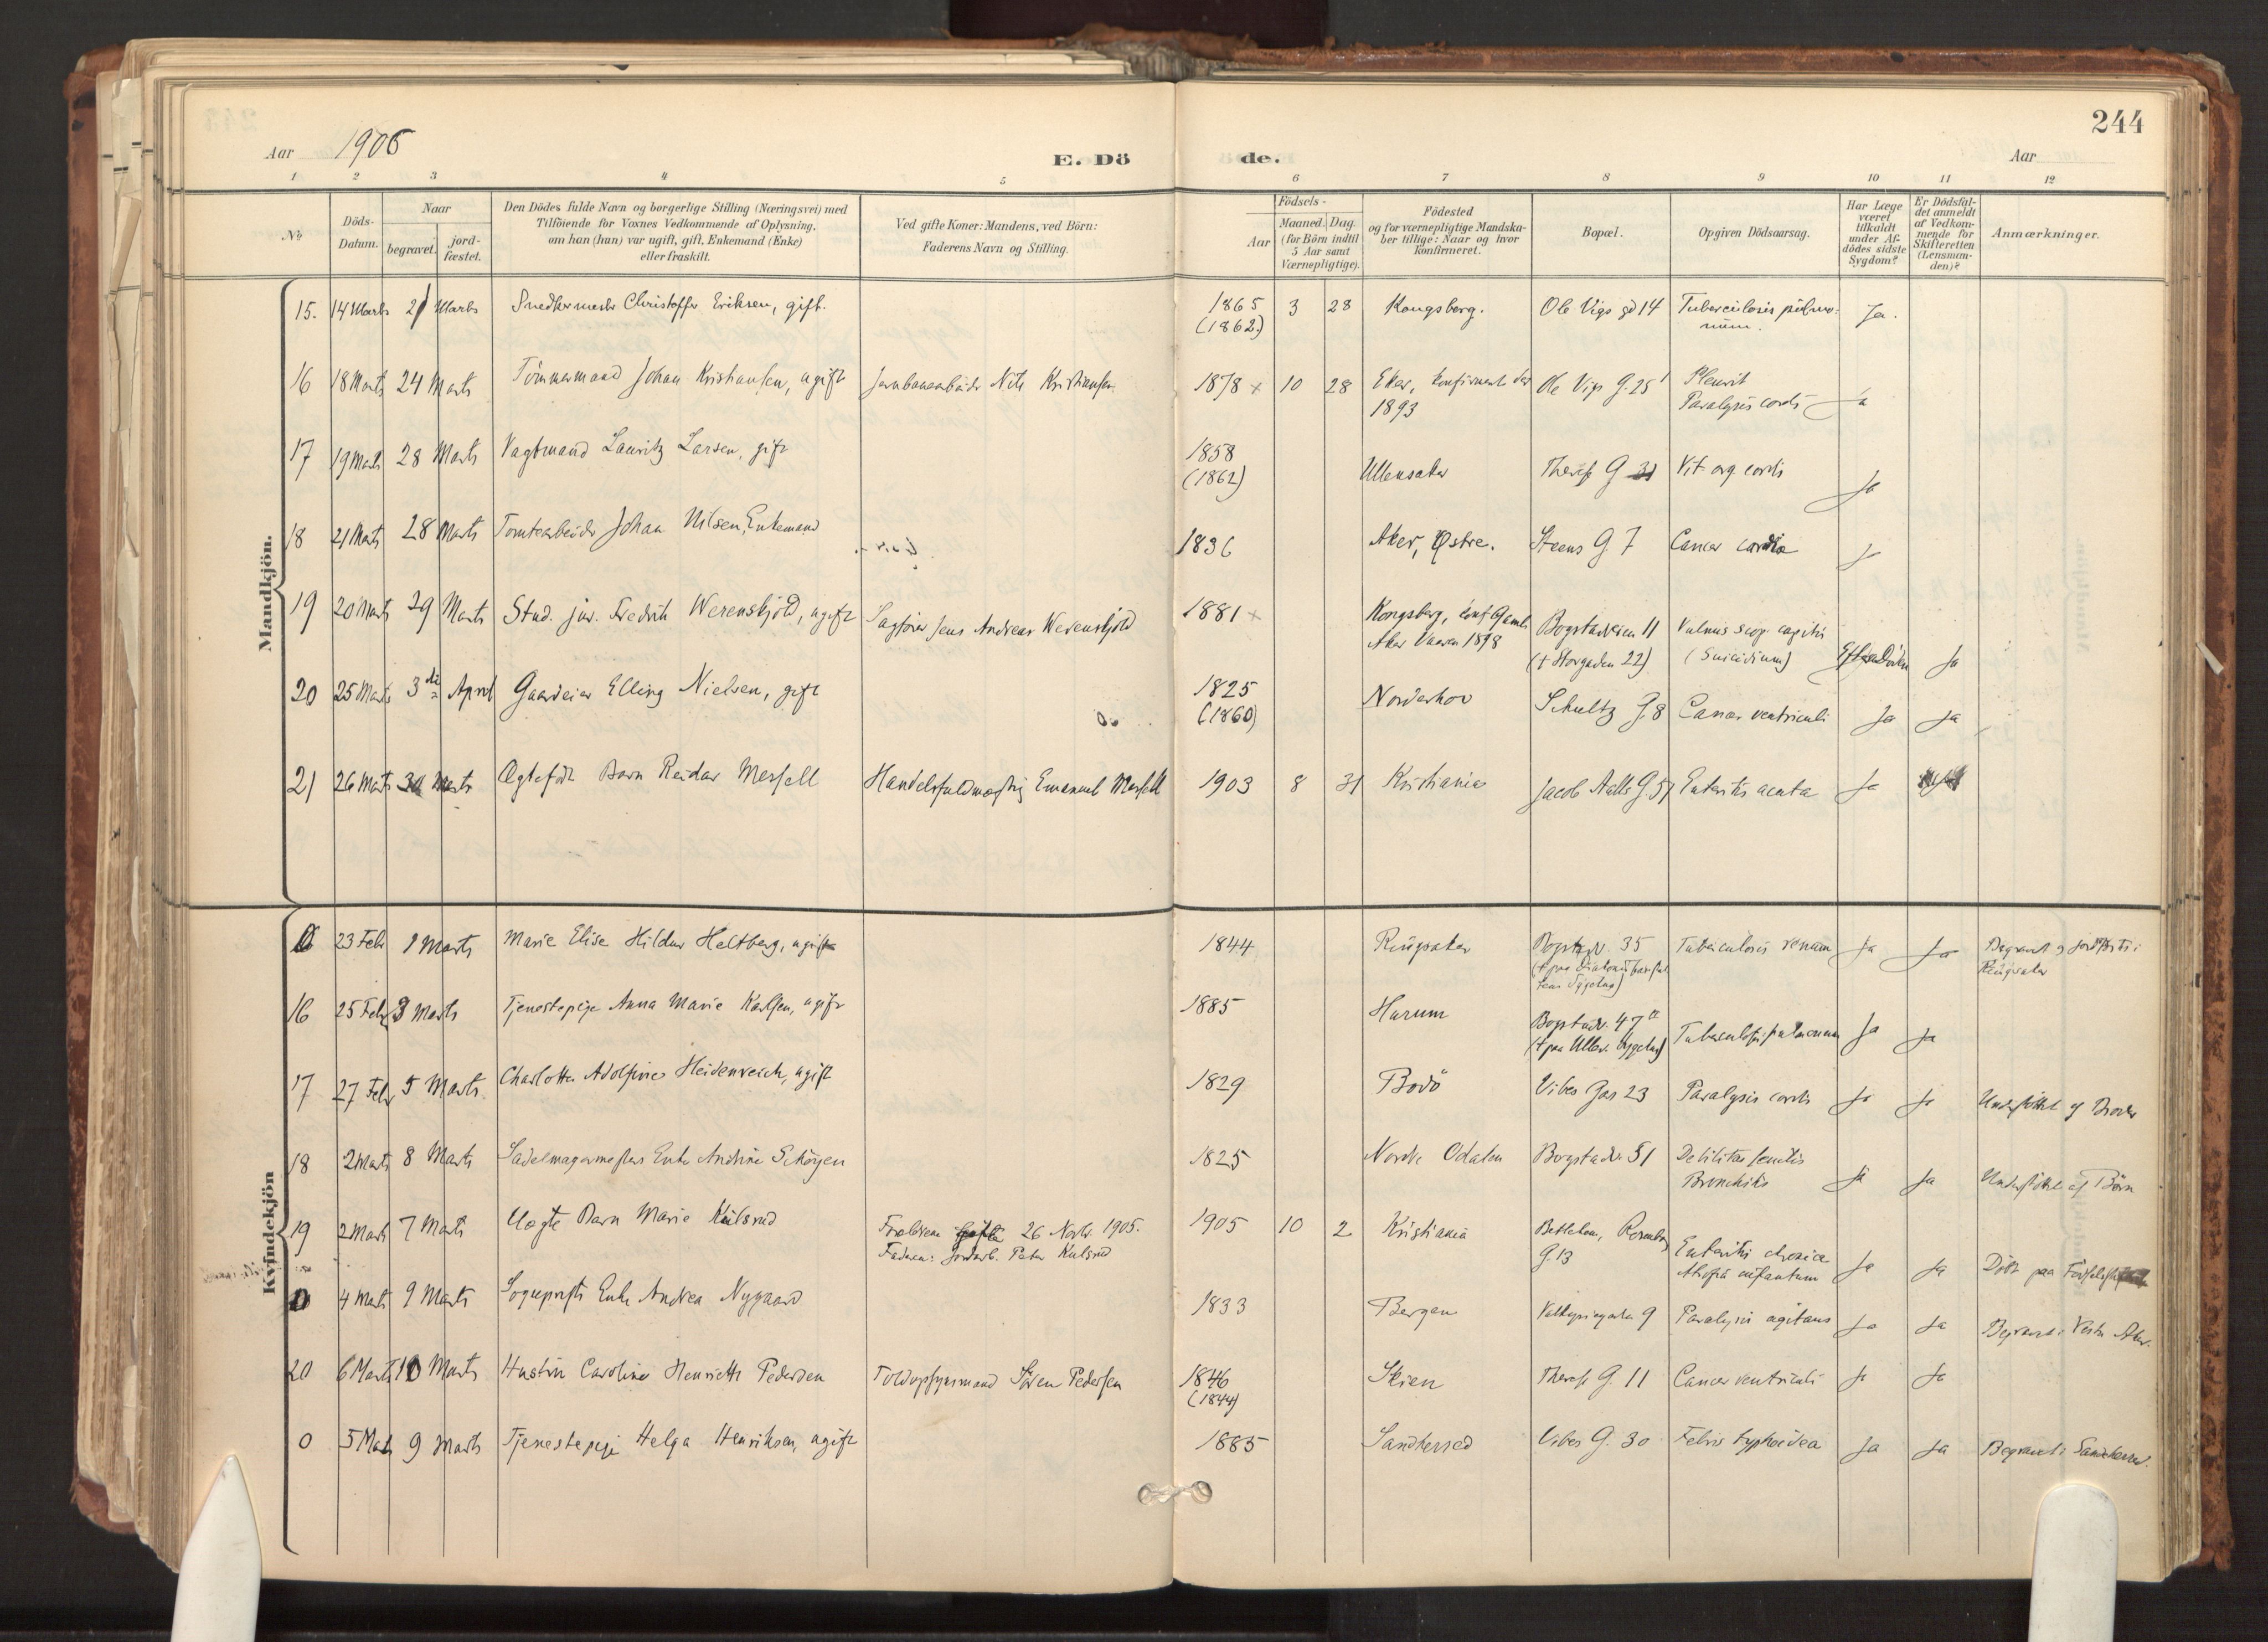 244
Aar 1906
E. Dö de.
Aar
1 2 3 4 5 6 7 8 9 10 11 12
No
Döds-Datum.
Naar
begravet.
jord-fæstet.
Den Dödes fulde Navn og borgerlige Stilling (Næringsvei) med
Tilföiende for Voxnes Vedkommende af Oplysning,
om han (hun) var ugift, gift, Enkemand (Enke)
eller fraskilt.
Ved gifte Koner: Mandens, ved Börn:
Faderens Navn og Stilling.
Födsels-
Aar
Maaned. Dag.
(for Börn indtil
5 Aar samt
Værnepligtige).
Födested
og for værnepligtige Mandska-
ber tillige: Naar og hvor
konfirmeret.
Bopæl.
Opgiven Dödsaarsag.
Har Læge
været
tilkaldt
under Af-
dödes sidste
Sygdom?
Er Dödsfal-
det anmeldt
af Vedkom-
mende for
Skifteretten
(Lensman-
den)?
Anmærkninger.
Mandkjön.
15. 14 Marts 21 Marts Snedkermester Christoffer Eriksen, gift. 1865 3 28 Kongsberg. Ole Vigs gd 14 Tuberculosis pulmo- Ja.
(1862) num.
16 18 Marts 24 Marts Tömmermand Johan Kristiansen, ugift Jernbanearbeider Nils Kristiansen. 1878 x 10 28 Eker, konfirmert der Ole Vigs G. 25 Pleurit Ja
1893 Paralysis cordis
17 19 Marts 28 Marts Vagtmand Lauritz Larsen, gift 1858 Ullensaker Theres G 31 Vit. org. cordis Ja
(1862)
18 21 Marts 28 Marts Tomtearbeider Johan Nilsen, Enkemand 1836 Aker, Østre. Steens G. 7 Cancer cardiæ Ja
19 20 Marts 29 Marts Stud. jur. Fredrik Werenskjold, ugift Sagförer Jens Andreas Werenskjold 1881 x Kongsberg, konf. Gamle Bogstadveien 11 Vulnus scop. capitis
Aker Vaaren 1898 († Storgaden 22) (Suicidium) Efter Döden Ja
20 25 Marts 3die April Gaardeier Elling Nielsen, gift 1825 Norderhov Schultz G. 8 Cancer ventriculi Ja Ja
(1860)
21 26 Marts 30 Marts Ægtefödt Barn Reidar Mesfell Handelsfuldmægtig Emanuel Mesfell 1903 8 31 Kristiania Jacob Aalls G. 57 Enteritis acuta Ja
Kvindekjön
0 23 Feb 1 Marts Marie Elise Hildur Heltberg, ugift 1844 Ringsaker Bogstadv. 35 Tuberculosis renum Ja Ja Begravet og jordfæstet i
Ringsaker
16 25 Feb 3 Marts Tjenestepige Anna Marie Karlsen, ugift 1885 Hurum Bogstadv. 47 Tuberculosis pulmonum Ja Ja
(† paa Ullev. Sygehus)
17 27 Feb 5 Marts Charlotte Adolfine Heidenreich, ugift 1829 Bodö Vibes Gas 23 Paralysis cordis Ja Ja Understöttet af Broder
18 2 Marts 8 Marts Sadelmagermesters Enke Andrine Schöyen 1825 Nordre Odalen Bogstadv. 51 Debilitas senilis Ja Ja Understöttet af Börn
Bronchitis
19 2 Marts 7 Marts Uægte Barn Marie Kulsrud Forældrene gifte 26 Novbr. 1905. 1905 10 2 Kristiania Betlehem, Rosenborg
Faderen: Jordarb. Peter Kulsrud G. 13 Enteritis chronica Ja Ja
Atrophia infantum
0 4 Marts 9 Marts Sogneprests Enke Andrea Nygaard 1833 Bergen Valkyriegaden 9 Paralysis agitans Ja Ja Begravet i Vestre Aker.
20 6 Marts 10 Marts Hustru Caroline Henriette Pedersen Toldopsynsmand Sören Pedersen 1846 Skien Theres G. 11 Cancer ventriculi Ja Ja
(1844)
0 5 Marts 9 Marts Tjenestepige Helga Henriksen, ugift 1885 Sandherred Vibes G. 30 Febris typhoidea Ja Ja Begravet i Sandherred.